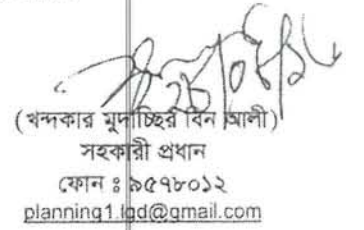 (খন্দকার মুদাচ্ছির বিন আলী)
সহকারী প্রধান
ফোন ঃ ৯৫৭৮০১২
planning1.lgd@gmail.com